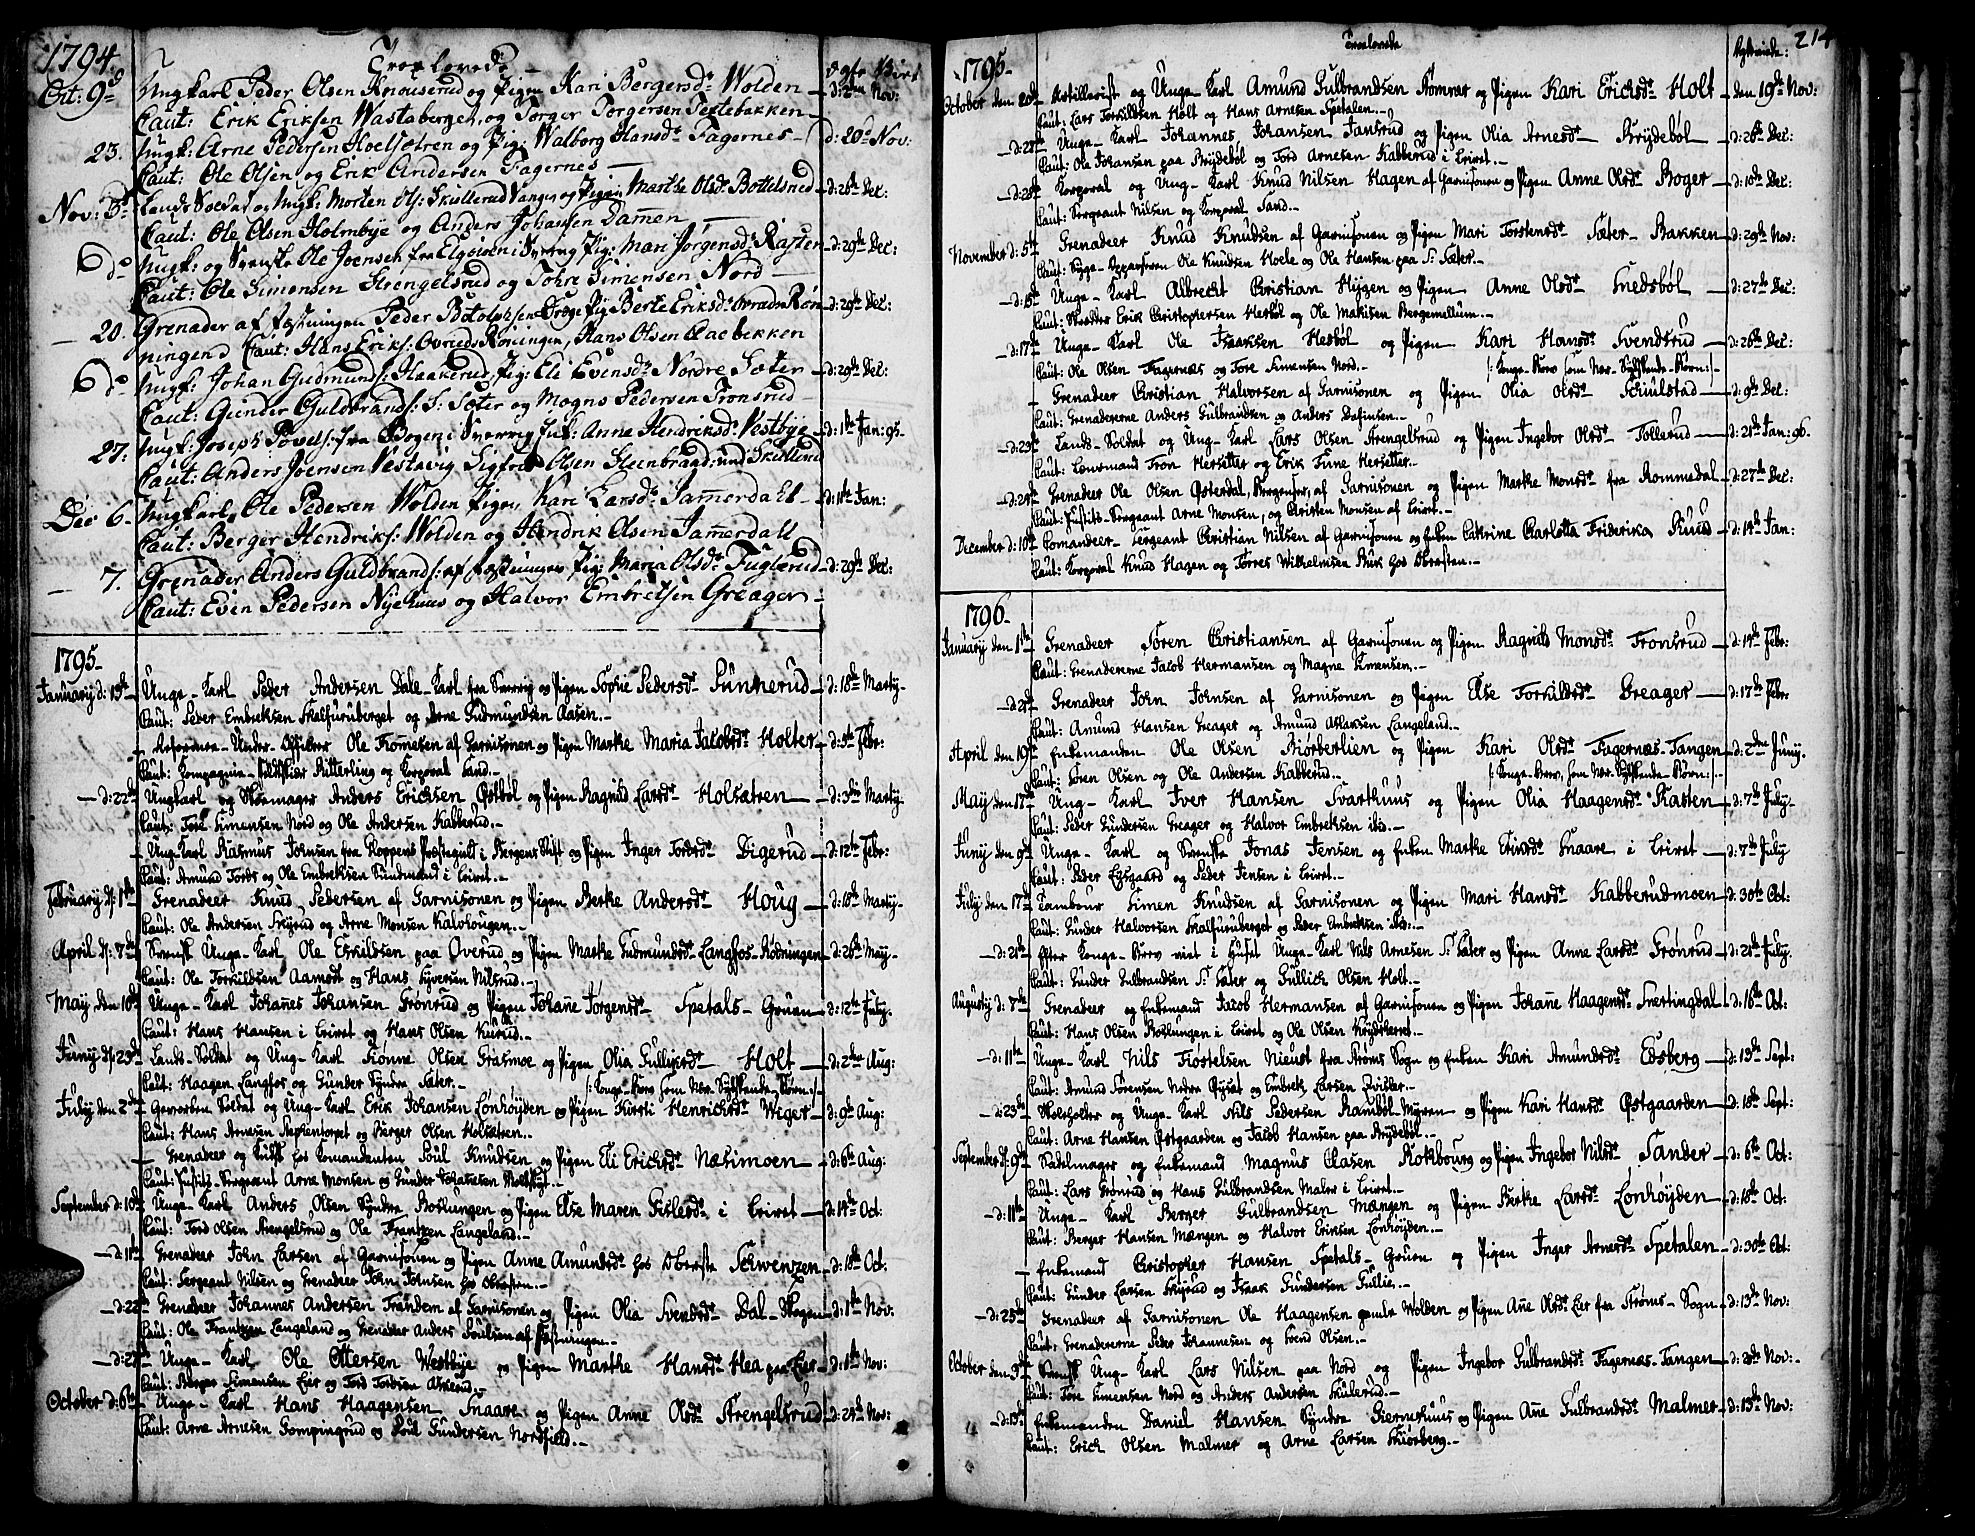 1794
Troelovede
Oct: 9d Ungkarl Peder Olsen Knouserud og Pigen Kari Børgersd: Wolden d: 2den Nov:
Caut: Erik Eriksen Wastaberget, og Torger Torgersen Testebakken
23. Ungk: Arne Pedersen Hoelsætren og Pig: Walborg Hansd: Fagernes d: 20d Nov:
Caut: Ole Olsen og Erik Andersen Fagernes
Nov: 3d Lands Soldat og Ungk: Morten Ols: Skullerud Vangen og Pigen Marthe Olsd: Bottelsrud d: 26de Dec:
Caut: Ole Olsen Holmbye og Anders Johansen Dammen
6d Ungk: og Svenske Ole Joensen fra Elgaaen i Sverrig Pig: Mari Jørgensd: Rasten d: 29de Dec:
Caut: Ole Simonsen Strengelsrud og Tohre Simensen Nord
20. Grenader af fæstningen Peder Botolphsen Droge Pig Berte Eriksd: Ovrads Røn d: 29de Dec:
ningend Caut: Hans Eriks: Ovreds Røningen, Hans Olsen Aaebekken
6d Ungk: Johan Gudmunds: Haakerud, Pig: Eli Evensd: Nordre Sæter d: 29de Dec:
Caut: Gunder Guldbrands: S: Sæter og Mogns Pedersen Tronsrud
27. Ungk: Joseph Povels: fra Bogen i Sverrig Enk: Anne Hendriksd: Vestbye d: 1ste Jan: 95.
Caut: Anders Joensen Vestavig Sigfred Olsen Steenbraad: und Skullerud
Dec 6 Ungkarl Ole Pedersen Wolden Pigen Kari Larsd: Jammerdalt d: 11te Jan:
Caut: Berger Hendriks: Wolden og Hendrik Olsen Jammerdalt
7. Grenader Anders Guldbrands: af fæstningen Pig: Maria Olsd: Fuglerud d: 29de Dec:
Caut: Even Pedersen Nyehuus og Halvor Embretsen Greager
1795
January d: 15de Unge-Karl Peder Andersen Dale-Karl fra Sverrig og Pigen Sophie Pedersd: Sunnerud d: 18de Marty
Caut: Peder Embretsen Skalfuruberget og Arne Gudmundsen Aasen.
Reformeert Under-Officeer Ole Tommesen af Garnisonen og Pigen Marthe Maria Jacobsd: Holter d: 5te Febr:
Caut: Kompagnie-Feldtskiær Ritterling og Korporal Sand.
d: 22de Ungkarl og Skomager Anders Erichsen Østbøl og Pigen Ragnild Larsd: Holsætren d: 3die Marty
Caut: Tore Simensen Nord og Ole Andersen Kabberud.
Ung-Karl Rasmus Johnsen fra Gloppens Præstegield i Bergens Stift og Pigen Inger Tordsd: Digerud d: 12te Febr:
Caut: Amund Tords og Ole Embretsen Sundmand i Leiret.
February d: 1ste Grenadeer Knud Pedersen af Garnisonen og Pigen Berthe Andersd: Houg d: 18de Marty
Caut: Ole Andersen Skyrud og Arne Monsen Kalvhougen.
April d: 7de Svensk Unge-Karl Ole Eskildsen paa Overud og Pigen Marthe Gudmundsd: Langfos-Rødningen d: 26de May
Caut: Ole Torkildsen Aamodt og Hans Syversen Nilsrud.
May den 10de Unge-Karl Johannes Johansen Grønrud og Pigen Johanne Jørgensd: Spetals-Gruen d: 12te July.
Caut: Hans Hansen i Leiret og Hans Olsen Kurud.
Juny d: 23de Lands-Soldat og Ung-Karl Tiønne Olsen Grasmoe og Pigen Olia Gullichsd: Holt d: 2den Aug:
Caut: Haagen Langfos og Gunder Syndre Sæter. /: Konge-Brev som Nær-Sydskende-Børn :/
July den 2den Geworben Soldat og Ung-Karl Erik Johansen Lønhøyden og Pigen Kirsti Henrichsd: Wiger d: 9de Aug:
Caut: Hans Arnesen Sneckentorpet og Berger Olsen Holsætren.
Grenadeer og Kusk hos Komandanten Poul Knudsen og Pigen Eli Erichsd: Næsimoen d: 6te Aug:
Caut: Justits-Sergeant Arne Monsen og Gunder Johannesen Moltkyt.
September d: 10de Unge-Karl Anders Olsen Syndre Boslungen og Pigen Else Maren Gislesd: i Leiret d: 14de Oct:
Caut: Tord Olsen Strengelsrud og Ole Frantzen Langeland.
d: 11te Grenadeer John Larsen af Garnisonen og Pigen Anne Amundsd: hos Oberste Schwenzen d: 18de Oct.
Caut: Sergeant Nilsen og Grenadeer John Johnsen hos Obersten.
d: 22de Grenadeer Johannes Andersen Trandem af Garnisonen og Pigen Olia Svendsd: Dal-Skogen d: 1ste Nov:
Caut: Ole Frantzen Langeland og Grenadeer Anders Poulsen af Fæstningen.
d: 27de Unge-Karl Ole Ottersen Westbye og Pigen Marthe Hansd: Hea paa Eier d: 1ste Nov:
Caut: Berger Simensen Eier og Tord Tordsen Aklerud.
October d: 6te Unge-Karl Hans Haagensen Snaare og Pigen Anne Olsd: Strengelsrud d: 24de Nov:
Caut: Arne Arnesen Gompingrud og Poul Gundersen Nordfield.
Troelovede 214
1795
October den 20de Artillerist og Unge-Karl Amund Gulbrandsen Komnæs og Pigen Kari Erichsd: Holt den 19de Nov:
Caut: Lars Torkildsen Holt og Hans Arnesen Spetalen.
d: 28de Unge-Karl Johannes Johansen Jansrud og Pigen Olia Arnesd: Brydebøl d: 26de Dec:
Caut: Ole Johansen paa Brydebøl og Tord Arnesen Kabberud i Leiret.
d: 28de Korporal og Ung-Karl Knud Nilsen Hagen af Garnisonen og Pigen Anne Olsd: Boger d: 10de Dec:
Caut: Sergeant Nilsen og Korporal Sand.
November d: 5te Grenadeer Knud Knudsen af Garnisonen og Pigen Mari Torstensd: Sæter-Bakken d: 29de Nov:
Caut: Syge-Oppasseren Ole Knudsen Hoele og Ole Hansen paa S: Sæter.
d: 15de Unge-Karl Albrecht Christian Hiygen og Pigen Anne Olsd: Snedsbøl d: 27de Dec:
Caut: Skredder Erik Christophersen Hesbøl og Ole Mathisen Bergemellum.
d: 17de Unge-Karl Ole Isaksen Hesbøl og Pigen Kari Hansd: Svendsrud d: 26de Dec:
Caut: Ole Olsen Fagernæs og Tore Simensen Nord. /: Konge-Brev som Nær-Sydskende-Børn :/
Grenadeer Christian Halvorsen af Garnisonen og Pigen Olia Olsd: Schulstad d: 9de Dec:
Caut: Grenadererne Anders Gulbrandsen og Anders Dafinsen.
d: 29de Lands-Soldat og Ung-Karl Lars Olsen Strengelsrud og Pigen Ingebor Olsd: Tollerud d: 21de Jan: 96.
Caut: Lensmand Tron Hersætter og Erik Tune Hersætter.
d: 29de Grenadeer Ole Olsen Østerdal, Bergenser, af Garnisonen og Pigen Marthe Monsd: fra Rommedal d: 27de Dec:
Caut: Justits-Sergeant Arne Monsen, og Christen Monsen af Leiret.
December d: 10de Comandeer-Sergeant Christian Nilsen af Garnisonen og Enken Cathrine Charlotta Friderika Kuus d: 14de Jan:
Caut: Korporal Knud Hagen og Torres Wilhelmsen Brik hos Obersten.
1796
January den 1ste Grenadeer Søren Christiansen af Garnisonen og Pigen Ragnild Monsd: Tronsrud d: 14de Febr:
Caut: Grenadererne Jacob Hermansen og Magne Simensen.
d: 21de Grenadeer John Johnsen af Garnisonen og Pigen Else Torkildsd: Greager d: 17de Febr:
Caut: Amund Hansen Greager og Amund Aslaksen Langeland.
April den 19de Enkemanden Ole Olsen Biørberlien og Pigen Kari Olsd: Fagernæs-Tangen d: 2den Juny.
Caut: Søren Olsen og Ole Andersen Kabberud. /: Konge-Brev, som Nær-Sydskende-Børn :/
May den 17de Ung-Karl Iver Hansen Svarthuus og Pigen Olia Haagensd: Rasten d: 7de July
Caut: Peder Gundersen Greager og Halvor Embretsen ibid.
Juny den 9de Unge-Karl og Svenske Jonas Jensen og Enken Marthe Ericsd: Snaare i Leiret d: 7de July
Caut: Peder Ezsgaard og Peder Jensen i Leiret.
July den 17de Tambour Simen Knudsen af Garnisonen og Pigen Mari Hansd: Kabberudmoen d: 30te Oct:
Caut: Gunder Halvorsen Skalfuruberget og Peder Embretsen ibid:
d: 21de Efter Konge-Brev viet i Huset Unge-Karl Nils Arnesen S: Sæter og Pigen Anne Larsd: Grønrud d: 21de July.
Caut: Gunder Gulbrandsen S: Sæter og Gullich Olsen Holt.
Augusty d: 7de Grenadeer og Enkemand Jacob Hermansen af Garnisonen og Pigen Johanne Haagensd: Snertingdal d: 16de Oct:
Caut: Hans Olsen Boslungen i Leiret og Ole Olsen Krydsheret.
d: 11te Unge-Karl Nils Kiostelsen Nieust fra Strøms Sogn og Enken Kari Amundsd: Edsberg d: 13de Sept:
Caut: Amund Sørensen Nedre Øysat og Embret Larsen Qvisler.
d: 23de Skoleholder og Unge-Karl Nils Pedersen Rambøl-Myren og Pigen Kari Hansd: Østgaarden d: 18de Sept:
Caut: Arne Hansen Østgaarden og Jacob Hansen paa Brydebøl.
September d: 9de Sadelmager og Enkemand Magnus Claesen Rothbourg og Pigen Ingebor Nilsd: Sander d: 6te Oct:
Caut: Lars Grønrud og Hans Gulbrandsen Maler i Leiret.
d: 11te Unge-Karl Berger Gulbrandsen Mængen og Pigen Berthe Larsd: Lønhøyden d: 18de Oct:
Caut: Berger Hansen Mængen og Halvor Eriksen Lønhøyden.
Enkemand Christopher Hansen Spetals-Gruen og Pigen Inger Arnesd: Spetalen d: 30te Oct:
Caut: Gunder Larsen Skyrud og Isaak Gundersen Gullie.
d: 25de Grenadeer af Garnisonen Ole Haagensen gamle Wolden og Pigen Ane Olsd: Lier fra Strøms-Sogn d: 13de Nov:
Caut: Grenadererne Peder Johannesen og Svend Olsen.
October den 3de Svensk Ung-Karl Lars Nilsen paa Nord og Pigen Ingebor Gulbrandsd: Fagernæs-Tangen d: 20de Nov:
Caut: Tore Simensen Nord og Anders Andersen Skulerud.
d: 13de Enkemanden Daniel Hansen Syndre Giernehuus og Pigen Ane Gulbrandsd: Malmer d: 13de Nov:
Caut: Erich Olsen Malmer og Arne Larsen Skiørberg.